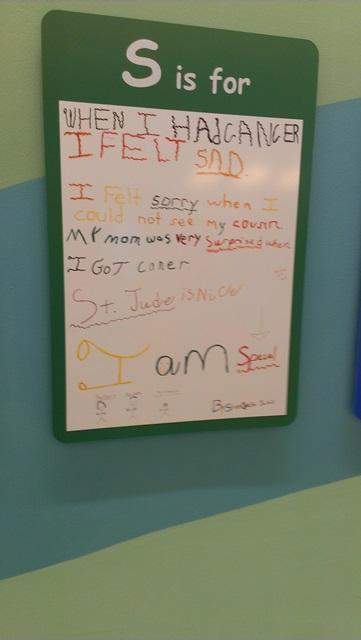 S is for
WHEN I HAdCANCER
I FELT SAD.
I Felt sorry when I
could not see my cousin.
MY mom was very Surprised when
I GoT caner
St. Jude is NiCe
I am Special